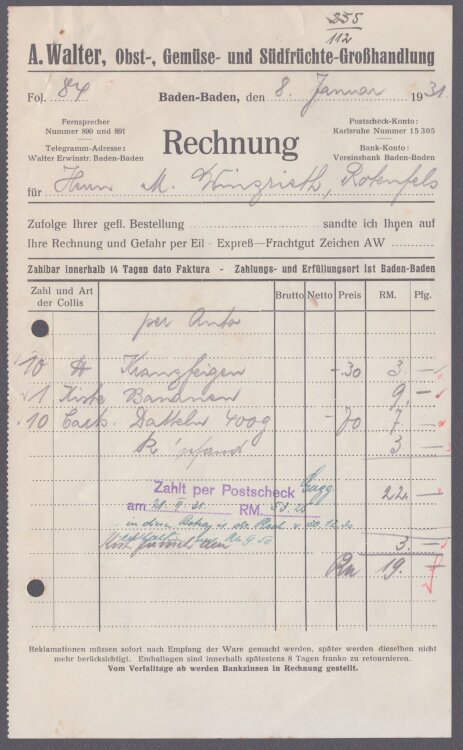 235
112
A. Walter, Obst-, Gemüse- und Südfrüchte-Großhandlung
Fol. 84 Baden-Baden, den 8. Januar 1931.
Fernsprecher
Nummer 890 und 891
Telegramm-Adresse:
Walter Erwinstr. Baden-Baden
Rechnung
Postscheck-Konto:
Karlsruhe Nummer 15 305
Bank-Konto:
Vereinsbank Baden-Baden
für Herrn M. Rotenfels
Zufolge Ihrer gefl. Bestellung sandte ich Ihnen auf
Ihre Rechnung und Gefahr per Eil - Expreß—Frachtgut Zeichen AW
Zahlbar innerhalb 14 Tagen dato Faktura - Zahlungs- und Erfüllungsort ist Baden-Baden
Zahl und Art der Collis Brutto Netto Preis RM. Pfg.
per Auto
10 Kranzfeigen -.30 3. —
1 Kiste Bananen 9. —
10 Datteln 400g -.70 7. —
Pfand 3 —
Zahlt per Postscheck Gagg 22 —
am 21. II. 31 RM. 53.25
in dem Betrag
3. —
Rm 19. —
Reklamationen müssen sofort nach Empfang der Ware gemacht werden, später werden dieselben nicht
mehr berücksichtigt. Emballagen sind innerhalb spätestens 8 Tagen franko zu retournieren.
Vom Verfalltage ab werden Bankzinsen in Rechnung gestellt.